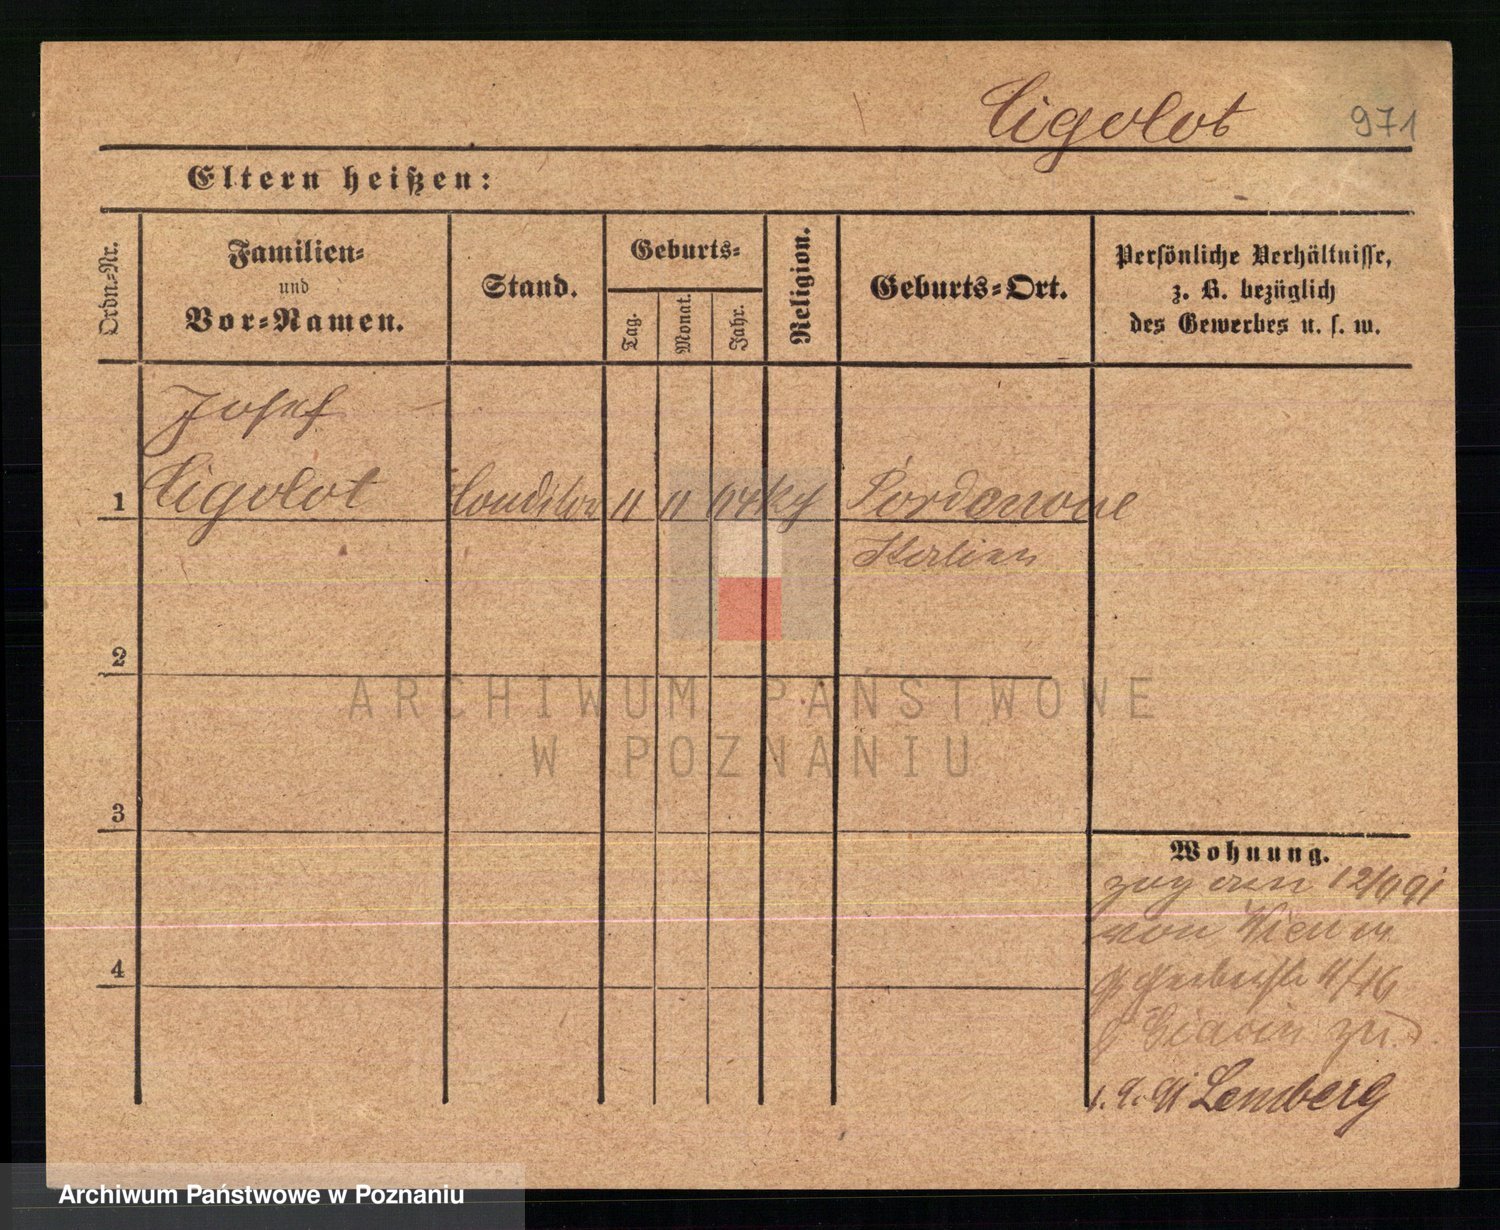 Cigolot 971
Eltern heißen:
Ordn-Nr.
Familien-
und
Vor-Namen.
Stand.
Geburts-
Tag.
Monat.
Jahr.
Religion.
Geburts-Ort.
Persönliche Verhältnisse,
z. B. bezüglich
des Gewerbes u. s. w.
Josef
1 Cigolot Conditor 11 11 kth Pordenone
Italien
2
ARCHIWUM PAŃSTWOWE
W POZNANIU
3
Wohnung.
zog am
von Wien
4
zu
Lemberg
Archiwum Państwowe w Poznaniu